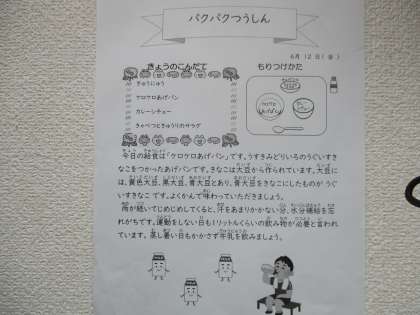 パクパクつうしん
6月12日(金)
きょうのこんだて
もりつけかた
ぎゅうにゅう
ケロケロあげパン
カレーシチュー
きゃべつときゅうりのサラダ
今日の給食は「ケロケロあげパン」です。うすきみどりいろのうぐいすき
なこをつかったあげパンです。きなこは大豆から作られています。大豆に
は、黄色大豆、黒大豆、青大豆とあり、青大豆をきなこにしたものが うぐ
いすきなこ です。よくかんで味わっていただきましょう。
雨が続いてじめじめしてくると、汗をあまりかかない分、水分補給を忘
れがちです。運動をしない日も1リットルくらいの飲み物が必要と言われ
ています。蒸し暑い日もかかさず牛乳を飲みましょう。